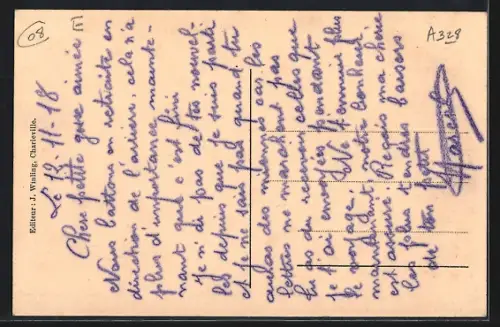 08
E
A328
Editeur : J. Winling, Charleville.
Le 12-11-18
Chere petite gosse aimée
Nous battons en retraite en
direction de l'arriere, cela n'a
plus d'importance mainte-
nant que c'est fini
Je n'ai pas de tes nouvel-
les depuis que je suis parti
et je ne sais pas quand tu
auras des miennes car les
lettres ne marchent pas
tu as du recevoir celles que
je t'ai envoyées pendant
le voyage. Ne t'ennuie plus
maintenant, notre bonheur
est assuré. Reçois ma chere
les plus tendres baisers
de ton petit
Marcel